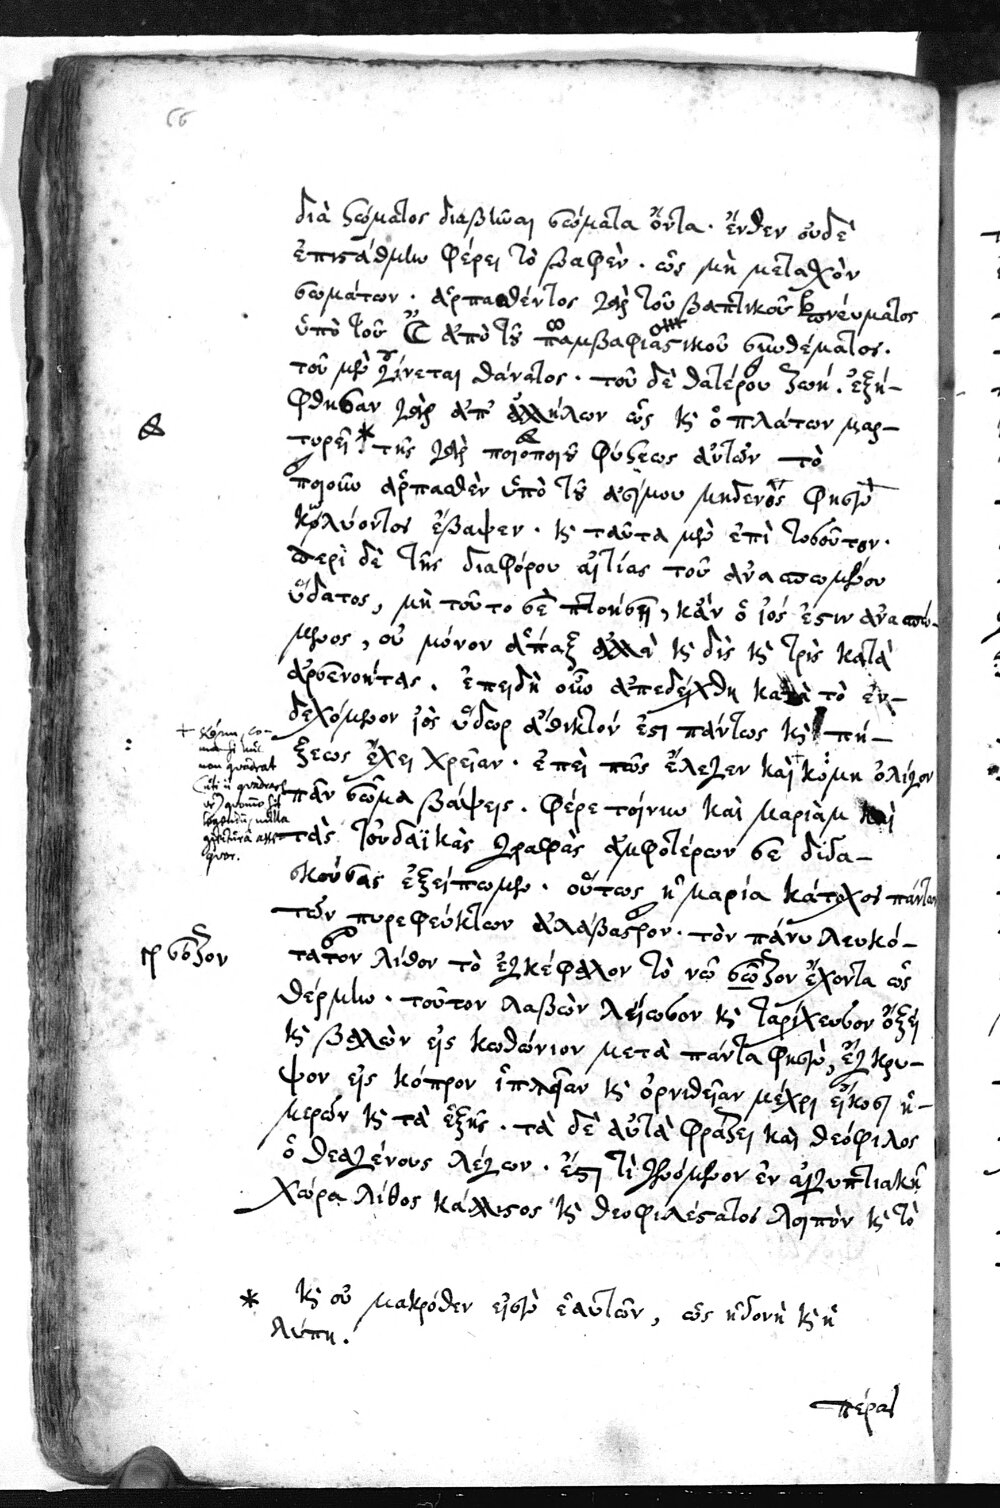 66
διὰ σώματος διαβιῶσαι σώματα ὄντα. ἔνθεν οὐδὲ
ἐπιστάθμω φέρει τὸ βαφὲν. ὡς μὴ μεταχὸν
σωμάτων. ἁρπασθέντος γὰρ τοῦ βαπτικοῦ πνεύματος
ὑπὸ τοῦ ἀπὸ τοῦ
τοῦ μὲν γίνεται θάνατος. τοῦ δὲ θατέρου ζωή. ἐξή-
φθησαν γὰρ ἀπ' ἀλλήλων ὡς κ̀ ὁ πλάτων μαρ-
τυρεῖ * τῆς γὰρ ποιοποιοῦ φύσεως αὐτῶν τὸ
ποιοῦν ἁρπασθὲν ὑπὸ τοῦ ἀσήμου μηδενὸς φησὶν
κωλύοντος ἔβαψεν. κ̀ ταῦτα μὲν ἐπὶ τοσοῦτον.
περὶ δὲ τῆς διαφόρου αἰτίας τοῦ ἀνασπωμένου
ὕδατος, μὴ τοῦτο σὲ πτοήσῃ, κἂν ὁ ἰός ἐστιν ἀνασπώ-
μενος, οὐ μόνον ἅπαξ ἀλλὰ κ̀ δὶς κ̀ τρὶς κατὰ
ἀρσενοήτας. ἐπειδὴ οὖν ἀπεδείχθη κατὰ τὸ ἐν-
δεχόμενον ἰὸς ὕδωρ ἄθικτόν ἐστι πάντως κ̀ πή-
ξεως ἔχει χρείαν. ἐπεὶ πῶς ἔλεγεν καὶ + κόμη ὀλίγον
πᾶν σῶμα βάψεις. φέρε τοίνυν καὶ μαριὰμ καὶ
τὰς ἰουδαϊκὰς γραφὰς ἀμφοτέρων σε διδα-
σκούσας ἐξείπωμεν. οὕτως ἡ μαρία κάτοχος πάντων
τῶν πυρεφεύκτων ἀλάβαστρον. τὸν πάνυ λευκό-
τατον λίθον τὸ ἐγκέφαλον τὸ νῶ σῶζον ἔχοντα ὡς
θέρμην. τοῦτον λαβὼν λείωσον κ̀ ταρίχευσον ὄξει
κ̀ βαλλὼν εἰς κωθώνιον μετὰ πάντα φησὶν, ἔγκρυ-
ψον εἰς κόπρον ἱππείαν κ̀ ὀρνιθείαν μέχρι εἴκοσι ἡ-
μερῶν κ̀ τὰ ἑξῆς. τὰ δὲ αὐτὰ φράζει καὶ θεόφιλος
ὁ θεαγένους λέγων. ἔστι τὶ γενόμενον ἐν αἰγυπτιακῇ
χώρα λίθος κάλλιστος κ̀ θεοφιλέστατος λοιπὸν κ̀ τὸ
+ κόμη, co-
ma si
non quadrat
σῶζον
* κ̀ οὐ μακρόθεν εἰσὶν ἑαυτῶν, ὡς ἡδονὴ κ̀ ἡ
λύπη.
πέρας